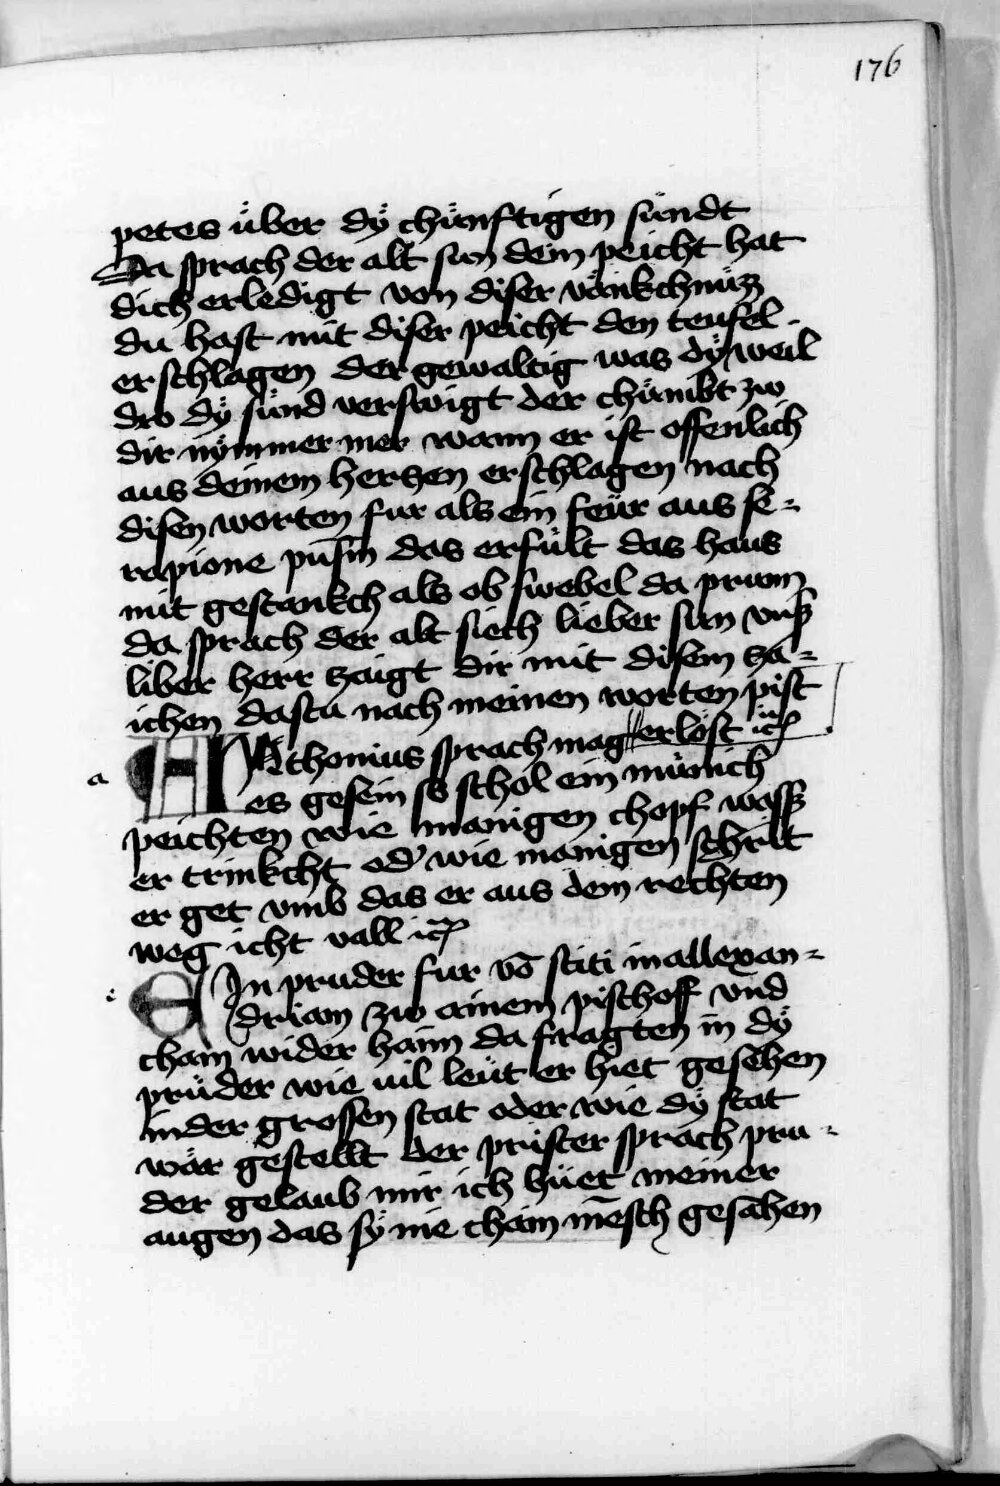 176
petes über dÿ chünftigen sündt
Da sprach der alt sun dein peicht hat
dich erledigt von diser vänkchnüzz
du hast mit diser peicht den teufel
erschlagen der gewaltig was dÿ weil
dw dÿ sünd verswigt der chümbt zw
dir nÿmmer mer wann er ist offenlich
aus deinem herczen erschlagen nach
disen worten fur als ein feür aus se-
rapione pusm das erfült das haus
mit gestankch als ob swebel da prunn
da sprach der alt siech lieber sun vnser
liber herr zaigt dir mit disem zai-
ichen dastu nach meinen worten pist
erlöst ic
a
ANthonius sprach mag
es gesein so schol ein münich
peichten wie manigen chopf wasser
er trinkcht od' wie manigen schrit
er get vmb das er aus dem rechten
weg icht vall ic
e
EIn pruder fur vō sciti in allexan-
driam zw ainem pischoff vnd
cham wider haim da fragten in dÿ
prüder wie uil leüt er hiet gesehen
in der grossen stat oder wie dÿ stat
wär gestellt der prüster sprach pru-
der gelaub mir ich hüet meiner
augen das sÿ nie chain mēsch gesahen